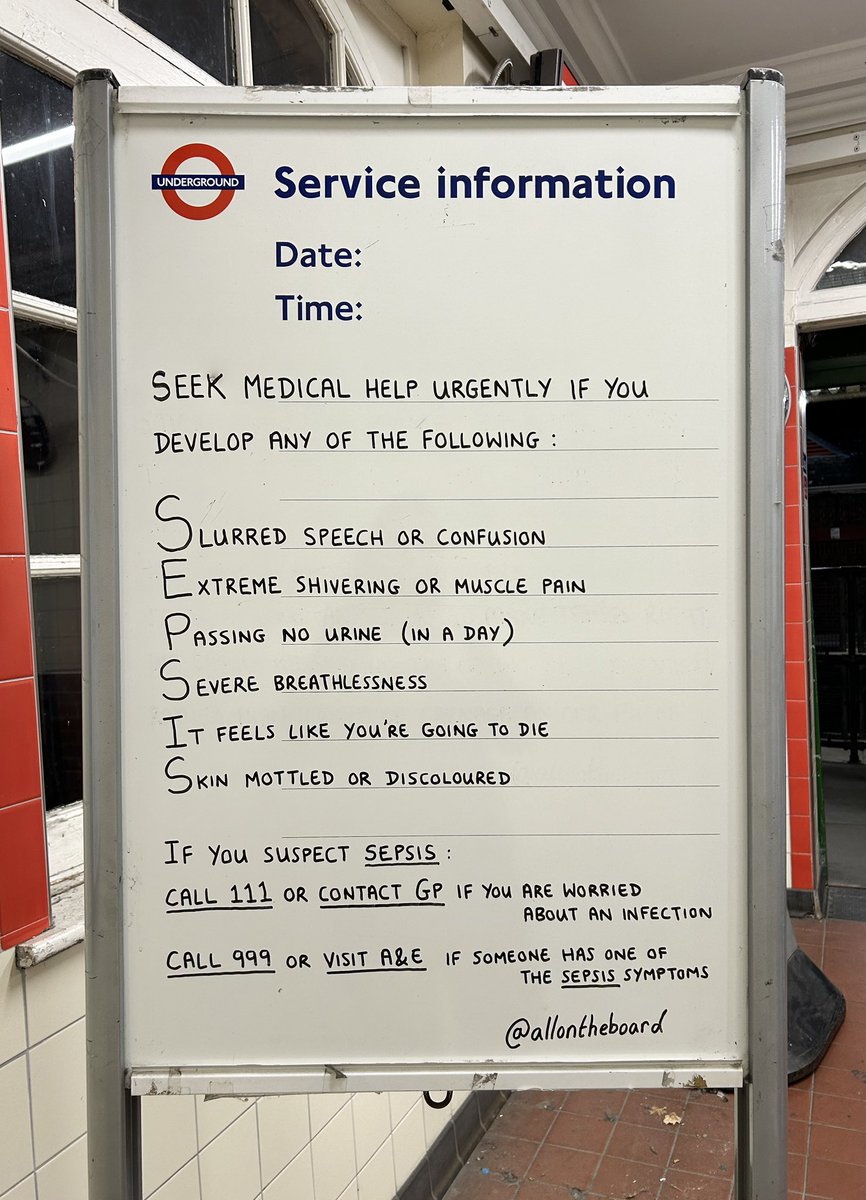 UNDERGROUND
Service information
Date:
Time:
SEEK MEDICAL HELP URGENTLY IF YOU
DEVELOP ANY OF THE FOLLOWING:
SLURRED SPEECH OR CONFUSION
EXTREME SHIVERING OR MUSCLE PAIN
PASSING NO URINE (IN A DAY)
SEVERE BREATHLESSNESS
IT FEELS LIKE YOU'RE GOING TO DIE
SKIN MOTTLED OR DISCOLOURED
IF YOU SUSPECT SEPSIS:
CALL 111 OR CONTACT GP IF YOU ARE WORRIED
ABOUT AN INFECTION
CALL 999 OR VISIT A&E IF SOMEONE HAS ONE OF
THE SEPSIS SYMPTOMS
@allontheboard